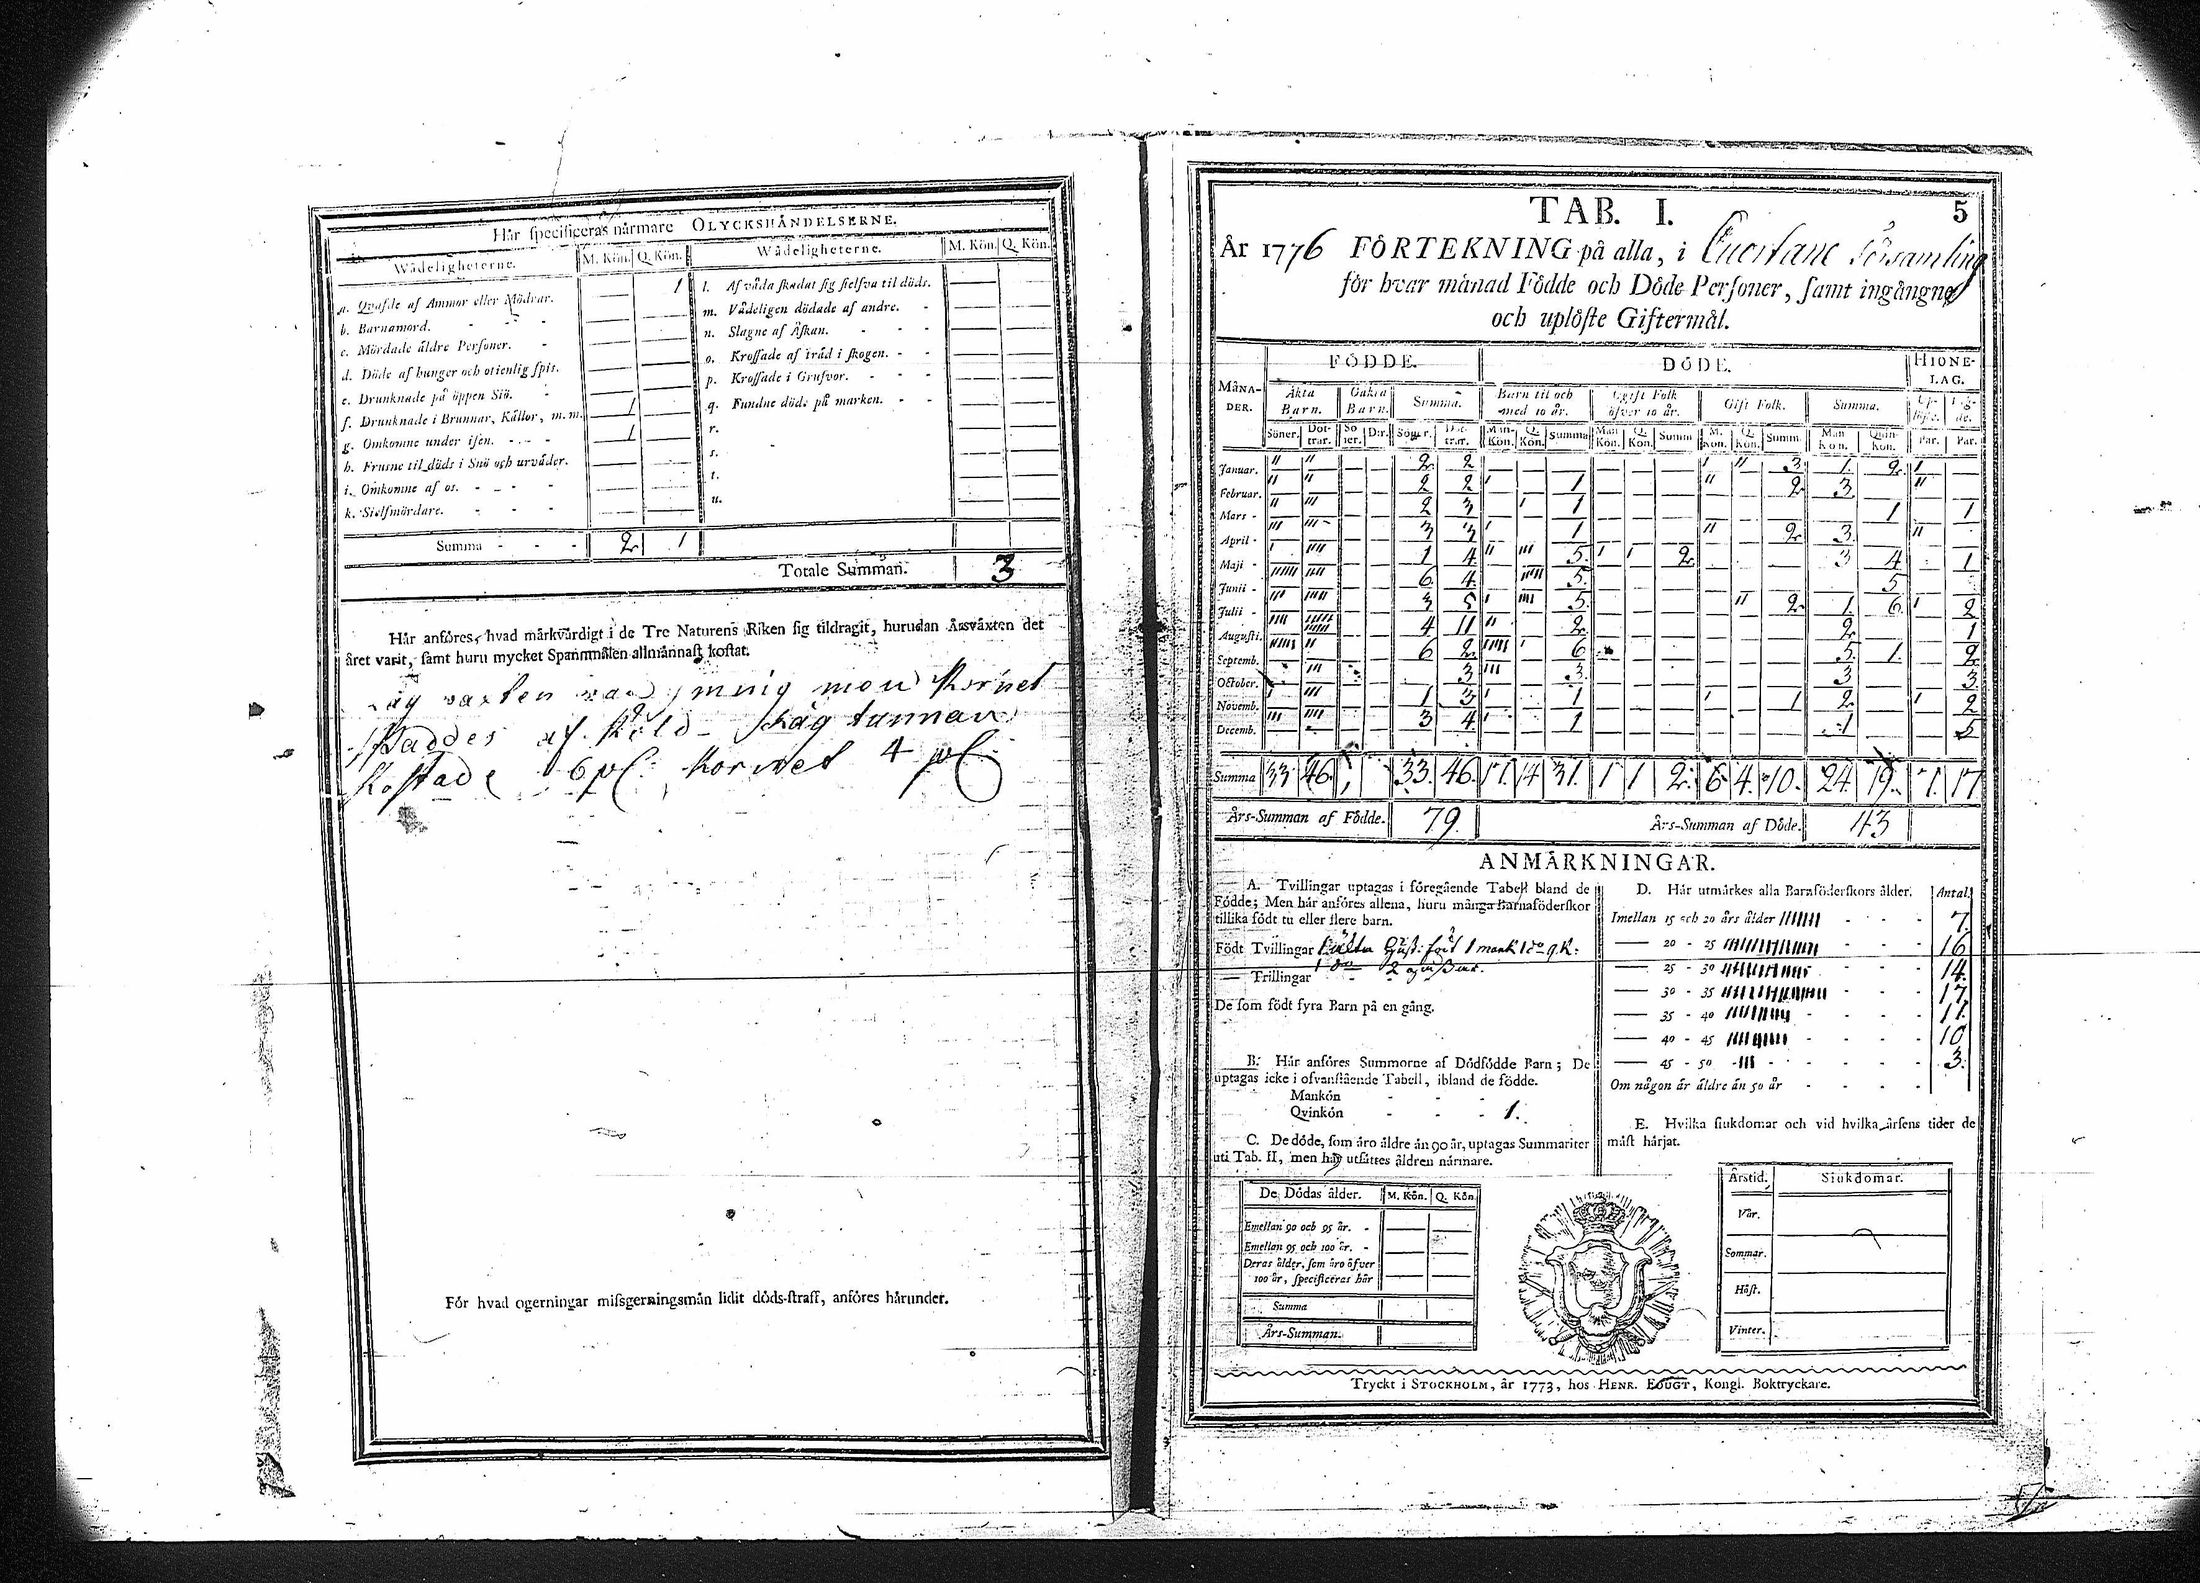 Här specificeras närmare OLYCKSHÄNDELSERNE.
Wådeligheterne. M. Kön. Q. Kön. Wådeligheterne. M. Kön. Q. Kön.
a. Qvafde af Ammor eller Mödrar. 1 l. Af våda skadat sig sielfva til döds.
b. Barnamord. m. Vådeligen dödade af andre.
c. Mördade äldre Personer. n. Slagne af Åskan.
d. Döde af hunger och otienlig spis. o. Krossade af träd i skogen.
e. Drunknade på öppen Siö. p. Krossade i Grufvor.
f. Drunknade i Brunnar, Källor, m.m. 1 q. Fundne döde på marken.
g. Omkomne under isen. 1 r.
h. Frusne til döds i Snö och urväder. s.
i. Omkomne af os. t.
k. Sielfmördare. u.
Summa 2 1
Totale Summan. 3
Här anföres, hvad märkvärdigt i de Tre Naturens Riken sig tildragit, hurudan Årsväxten det
året varit, samt huru mycket Spannmålen allmännast kostat.
växten men Kornet
skaddes af Köld Råg tunnan
Kostade 6 pl: Kornet 4 pl:
För hvad ogerningar missgerningsmän lidit döds-straff, anföres härunder.
TAB. I. 5
År 1776 FÖRTEKNING på alla, i Församling
för hvar månad Födde och Döde Personer, samt ingångne
och uplöste Giftermål.
MÅNADER. FÖDDE. DÖDE. HIONELAG.
Äkta Barn. Oäkta Barn. Summa. Barn til och med 10 år. Ogift Folk öfver 10 år. Gift Folk. Summa. Uplöste. Ing-de.
Söner. Döttrar. Söner. D:r. Söner. Döttrar. Man-Kön. Q. Kön. Summa Man Kön. Q. Kön. Summ M. Kön. Q. Kön. Summ. Man Kön. Quin-Kön. Par. Par.
Januar. 11 11 2 2 1 11 3 1 2 1
Februar. 11 11 2 2 1 1 11 2 3 11
Mars 11 111 2 3 1 1 1 1
April 111 111 3 3 1 1 11 2 3 11
Maji 1 1111 1 4 11 111 5 1 1 2 3 4 1
Junii 6 4 5 5
Julii 111 3 5 1 1111 5 11 2 1 6 1 2
Augusti. 1111 4 11 11 2 2 1
Septemb. 11 6 2 11111 1 6 5 1 2
October. 111 3 111 3 3 3
Novemb. 1 111 1 3 1 1 1 1 2 1 2
Decemb. 111 1111 3 4 1 1 1 5
Summa 33 46 33. 46. 17. 14 31. 1 1 2. 6 4. 10. 24. 19. 7. 17
Års-Summan af Födde. 79. Års-Summan af Döde. 43
ANMÄRKNINGAR.
A. Tvillingar uptagas i föregående Tabell bland de
Födde; Men här anföres allena, huru många Barnaföderskor
tillika födt tu eller flere barn.
Födt Tvillingar
Trillingar
De som födt fyra Barn på en gång.
B. Här anföres Summorne af Dödfödde Barn; De
uptagas icke i ofvanstående Tabell, ibland de födde.
Mankön
Qvinkön 1.
C. De döde, som äro äldre än 90 år, uptagas Summariter
uti Tab. II, men här utsättes åldren närmare.
De Dödas ålder. M. Kön. Q. Kön
Emellan 90 och 95 år.
Emellan 95 och 100 år.
Deras ålder, som äro öfver
100 år, specificeras här
Summa
Års-Summan.
D. Här utmärkes alla Barnföderskors ålder. Antal.
Imellan 15 och 20 års ålder 1111111 7.
20 - 25 16
25 - 30 14.
30 - 35 17
35 - 40 11.
40 - 45 10
45 - 50 111 3.
Om någon är äldre än 50 år
E. Hvilka siukdomar och vid hvilka årsens tider de
mäst härjat.
Årstid. Siukdomar.
Vår.
Sommar.
Höst.
Vinter.
Tryckt i STOCKHOLM, år 1773, hos HENR. FOUGT, Kongl. Boktryckare.